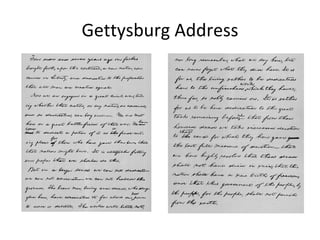 Gettysburg Address
Four score and seven years ago our fathers
brought forth, upon this continent, a new nation, con-
ceived in Liberty, and dedicated to the proposition
that all men are created equal.
Now we are engaged in a great civil war, test-
ing whether that nation, or any nation, so conceived,
and so dedicated, can long endure. We are met
on a great battle field of that war. We
have
come to dedicate a portion of it as the final rest-
ing place of those who here gave their lives that
that nation might live. It is altogether fitting
and proper that we should do this.
But in a larger sense we can not dedicate
we can not consecrate we can not hallow this
ground. The brave men, living and dead, who strug-
gled here, have consecrated it far above our poor
power to add or detract. The world will little note,
nor long remember, what we say here, but
can never forget what they did here. It is
for us, the living, rather to be dedicated
work
here to the unfinished which they have,
thus far, so nobly carried on. It is rather
for us to be here dedicated to the great
task remaining before us that from these
honored dead we take increased devotion
to the cause for which they here gave
the last full measure of devotion that
we here highly resolve that these dead
shall not have died in vain; that this
nation shall have a new birth of freedom;
and that this government of the people, by
the people, for the people, shall not perish
from the earth.